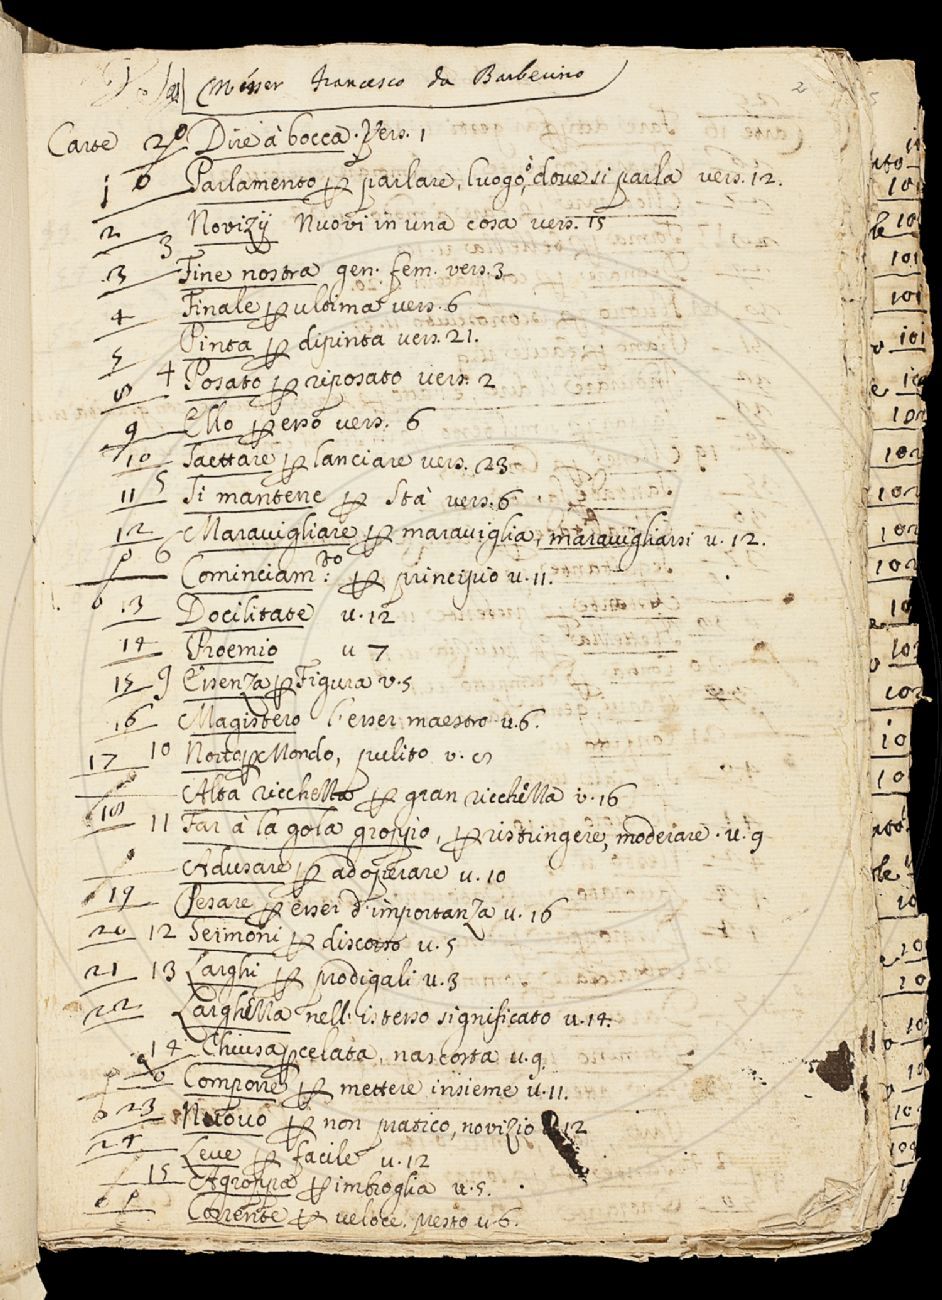 Messer Francesco da Barberino 2
Carte 2º Dire à bocca. Vers. 1
1 Parlamento per parlare, luogo, dove si parla vers. 12.
2 Novizij Nuovi in una cosa vers. 15
3
3 Fine nostra gen. fem. vers. 3
4 Finale per ultima vers. 6
5 Pinta per dipinta vers. 21.
8 4 Posato per riposato vers. 2
9 Ello per esso vers. 6
10 Saettare per lanciare vers. 23
11 5 Si mantene per Stà vers. 6
12 Maravigliare per maraviglia, maravigliarsi v. 12.
6 Cominciam.to per principio v. 11.
13 Docilitate v. 12
14 Proemio v 7
15 9 Essenza per Figura v. 5
16 Magistero l'esser maestro v. 6.
17 10 Netto per Mondo, pulito v. 8
18 Alta ricchezza per gran ricchezza v. 16
11 Far à la gola groppo, per ristringere, moderare. v. 9
Adusare per adoperare v. 10
19 Pesare per esser d'importanza v. 16
20 12 Sermoni per discorso v. 5
21 13 Larghi per prodigali v. 3
22 Larghezza nell'istesso significato v. 14.
14 Chiusa per celata, nascosta v. 9.
Compone per mettere insieme v. 11.
23 Nuovo per non pratico, novizio v 12
24 Leve per facile v. 12
15 Agroppa per imbroglia v. 5.
Corrente per veloce, presto v. 6.